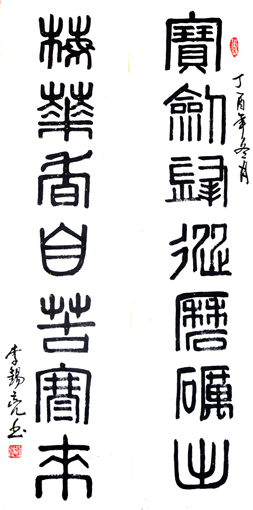 寶劍鋒從磨礪出
丁酉年冬月
梅華香自苦寒來
李錫亮书